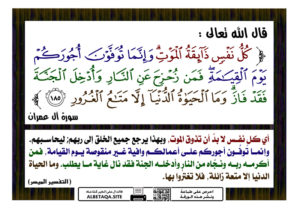 قال الله تعالى :
﴿ كُلُّ نَفْسٍ ذَآئِقَةُ الْمَوْتِ وَإِنَّمَا تُوَفَّوْنَ أُجُورَكُمْ
يَوْمَ الْقِيَٰمَةِ فَمَن زُحْزِحَ عَنِ النَّارِ وَأُدْخِلَ الْجَنَّةَ
فَقَدْ فَازَ وَمَا الْحَيَوٰةُ الدُّنْيَآ إِلَّا مَتَٰعُ الْغُرُورِ ١٨٥ ﴾
سورة آل عمران
أي كل نفس لا بدّ أن تذوق الموت، وبهذا يرجع جميع الخلق إلى ربهم; ليحاسبهم.
وإنما توفون أجوركم على أعمالكم وافية غير منقوصة يوم القيامة، فمن
أكرمه ربه ونجّاه من النار وأدخله الجنة فقد نال غاية ما يطلب. وما الحياة
الدنيا إلا متعة زائلة، فلا تغتروا بها.
(التفسير الميسر)
ALBETAQA.SITE